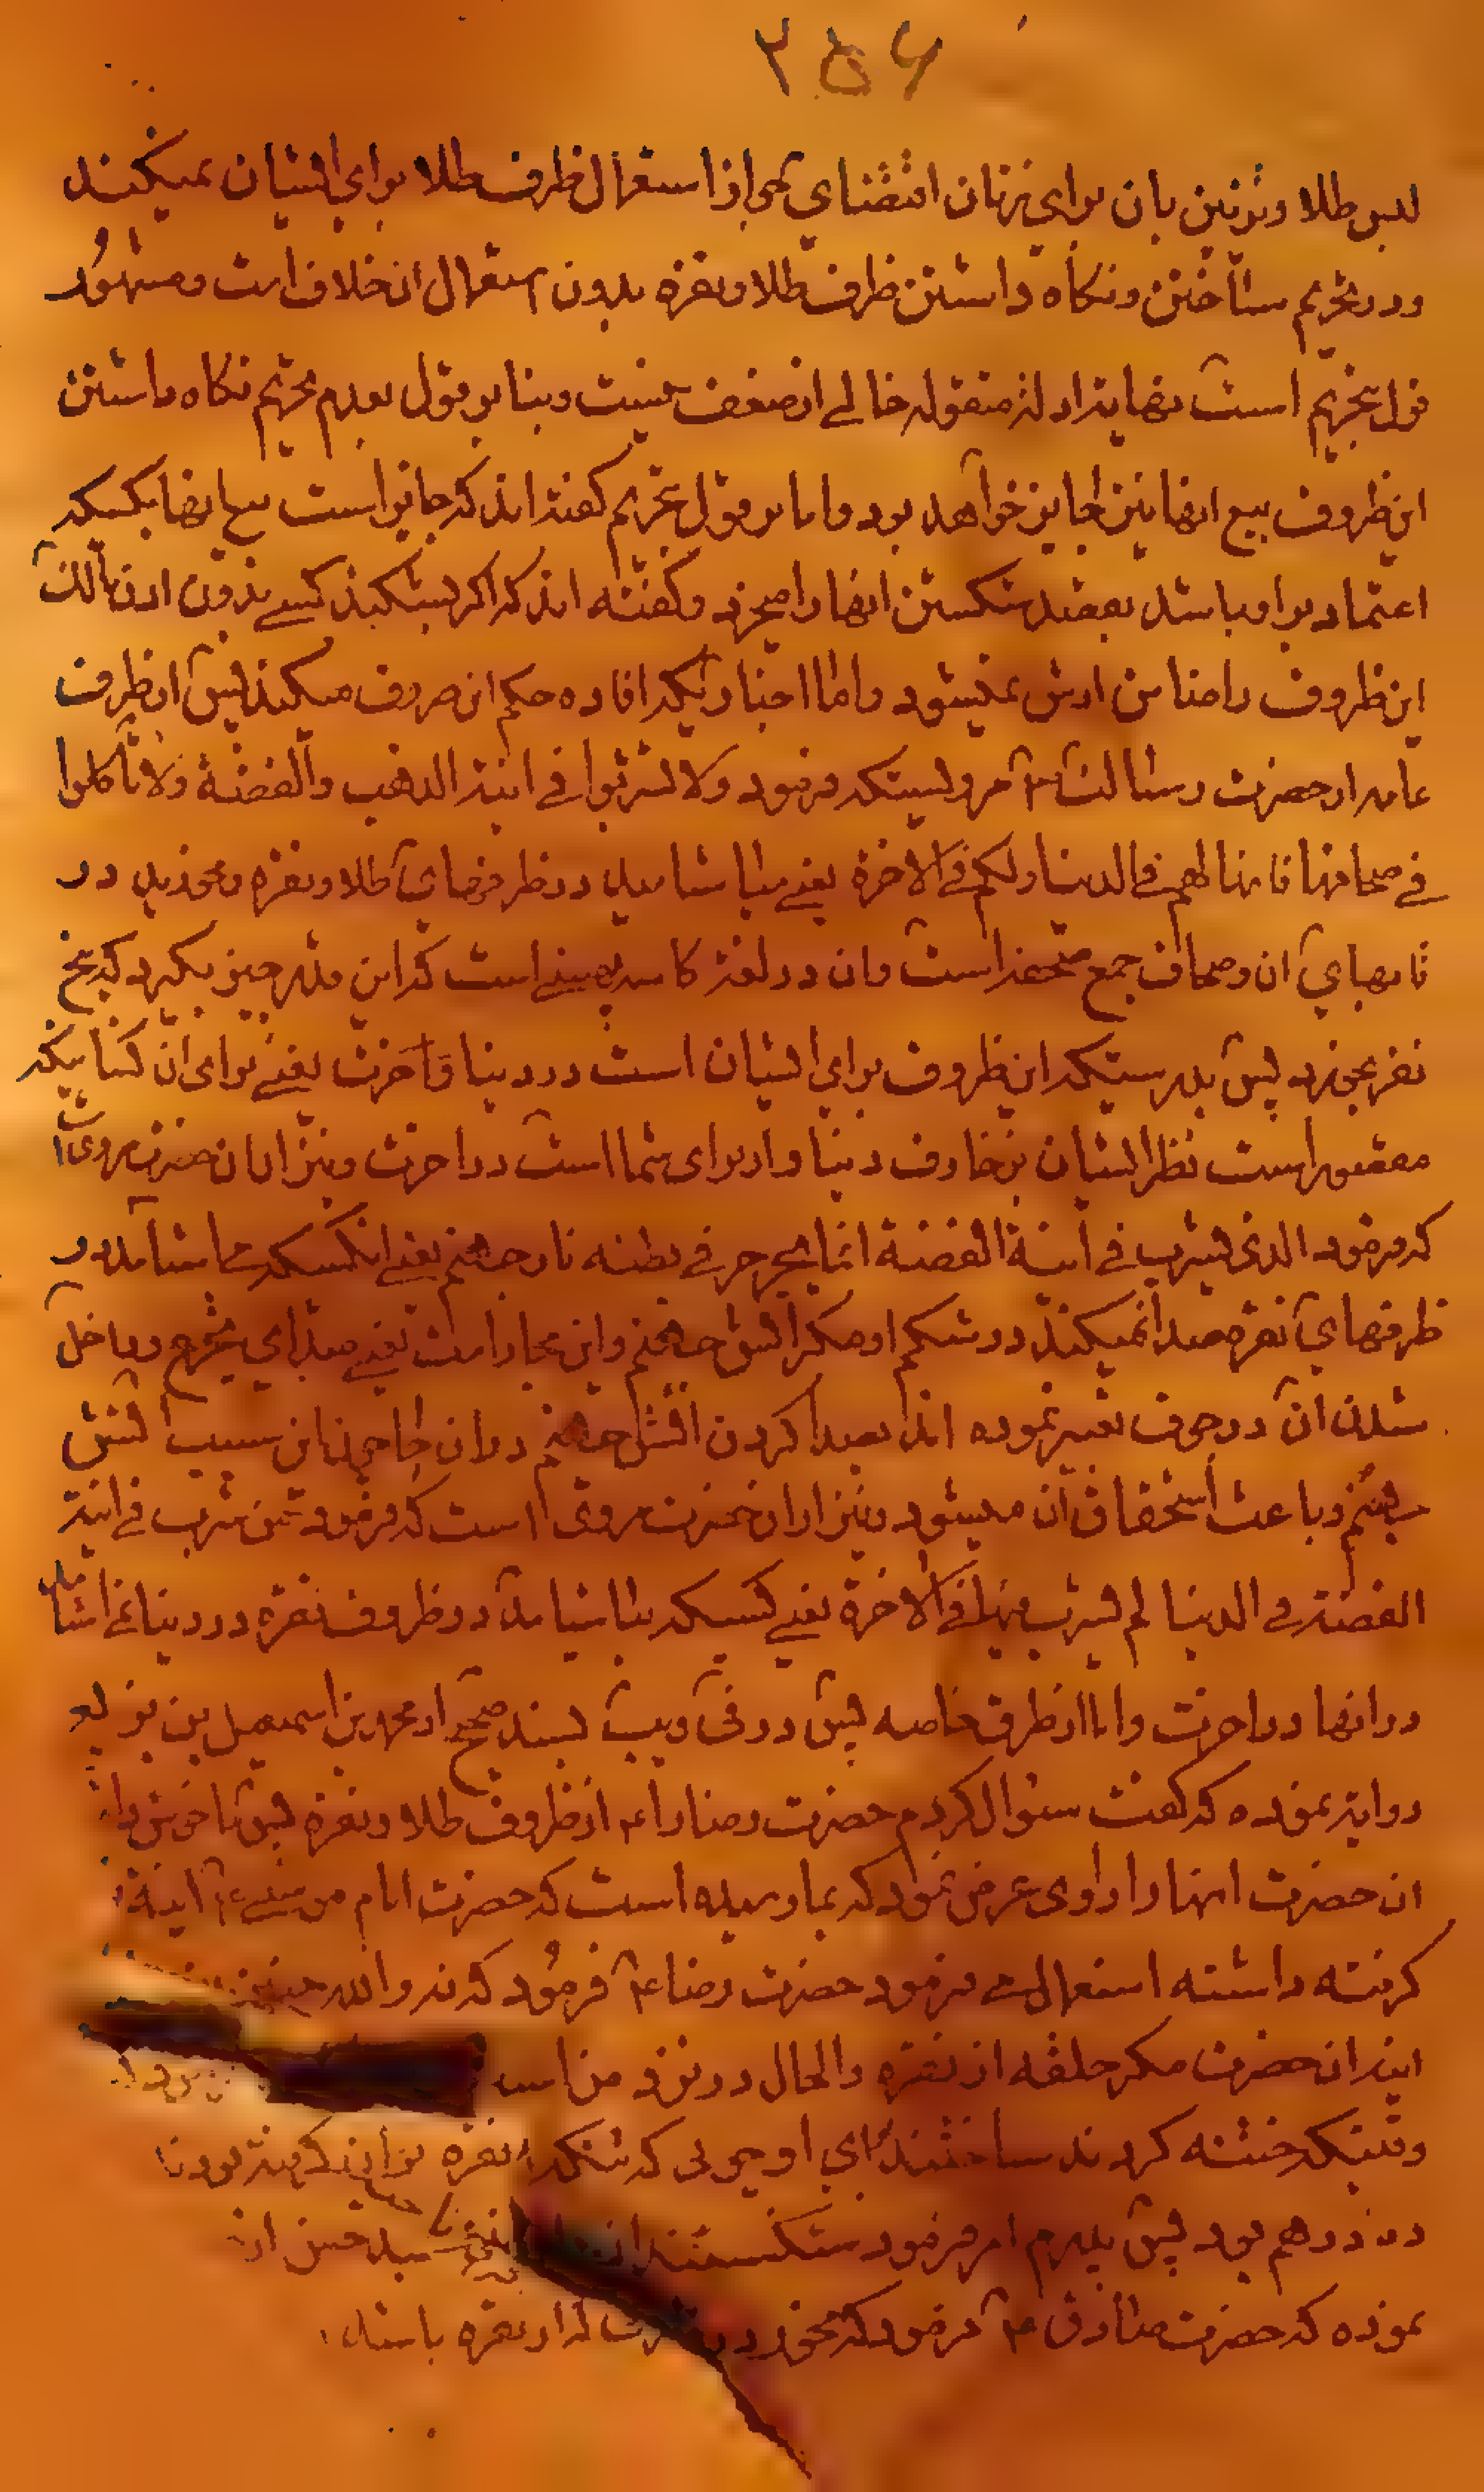 ۲۵۶
لبس طلا و تزیین بان برای زنان اقتضای نهی از استعمال ظرف طلا برای ایشان نمیکند
و در تحریم ساختن و نکاه داشتن ظرف طلا و نقره بدون استعمال ان خلاف است و مشهور
قول بتحریم است نهایة ادله منقوله خالی از ضعف نیست و بنا بر قول بعدم تحریم نکاه داشتن
این ظروف بیع انها نیز جایز خواهد بود و اما بر قول بتحریم کفته اند که جایز است بیع انها بکسیکه
اعتماد بر او باشد بقصد شکستن انها را میخرد و کفته اند که اکر بشکند کسی بدون اذن مالک
این ظروف را ضامن ارش نمیشود و اما اخباریکه افاده حکم این ظروف میکند پس از طرف
عامه از حضرت رسالت ص مرویستکه فرمود ولا تشربوا فی انیة الذهب والفضة ولا تاکلوا
فی صحافها فانها لهم فی الدنیا ولکم فی الاخرة یعنی میاشامید در ظرفهای طلا و نقره و مخورید در
کاسهای ان و صحاف جمع صحفه است و ان در لغة کاسه پهنی است که این قدر چیز بکیرد که پنج
نفر بخورد پس بدرستیکه این ظروف برای ایشان است در دنیا و آخرت یعنی برای ان کسانیکه
مقصور است نظر ایشان بزخارف دنیا و از برای شما است در اخرت و نیز از ان حضرت مرویست
که فرمود الذی یشرب فی آنیة الفضة انما یجرجر فی بطنه نار جهنم یعنی انکسیکه میاشامد در
ظرفهای نقره صدا نمیکند در شکم او مکر اتش جهنم و این مجاز است یعنی صدای تجرع و داخل
شدن ان در جوف تعبیر نموده اند بصدا کردن اتش جهنم در ان جا چه این سبب اتش
جهنم و باعث استحقاق آن میشود و نیز از ان حضرت مروی است که فرمود من شرب فی انیة
الفضة فی الدنیا لم یشرب فیها فی الاخرة یعنی کسیکه بیاشامد در ظروف نقره در دنیا نمی اشامد
در انها در اخرت و اما از طرق خاصه پس در فی و یب بسند صحیح از محمد بن اسمعیل بن بزیع
روایة نموده که کفت سئوال کردم حضرت رضا را ع از ظروف طلا و نقره پس ناخوش داشت
ان حضرت انها را راوی عرض نمود که بما رسیده است که حضرت امام موسی ع آینه
کرفته داشته استعمال می فرمود حضرت رضا ع فرمود که نه والله
اینه ان حضرت مکر حلقه از نقره و الحال در نزد من است
وقتیکه ختنه کردند ساختند برای او چوبی که نقره بر ان
ده درهم بود پس پدرم امر فرمود شکستند
نموده که حضرت صادق ع فرمود که مخور در که از نقره باشد